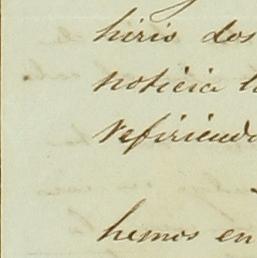 hirio dos
noticia l
refiriendo
hemos en